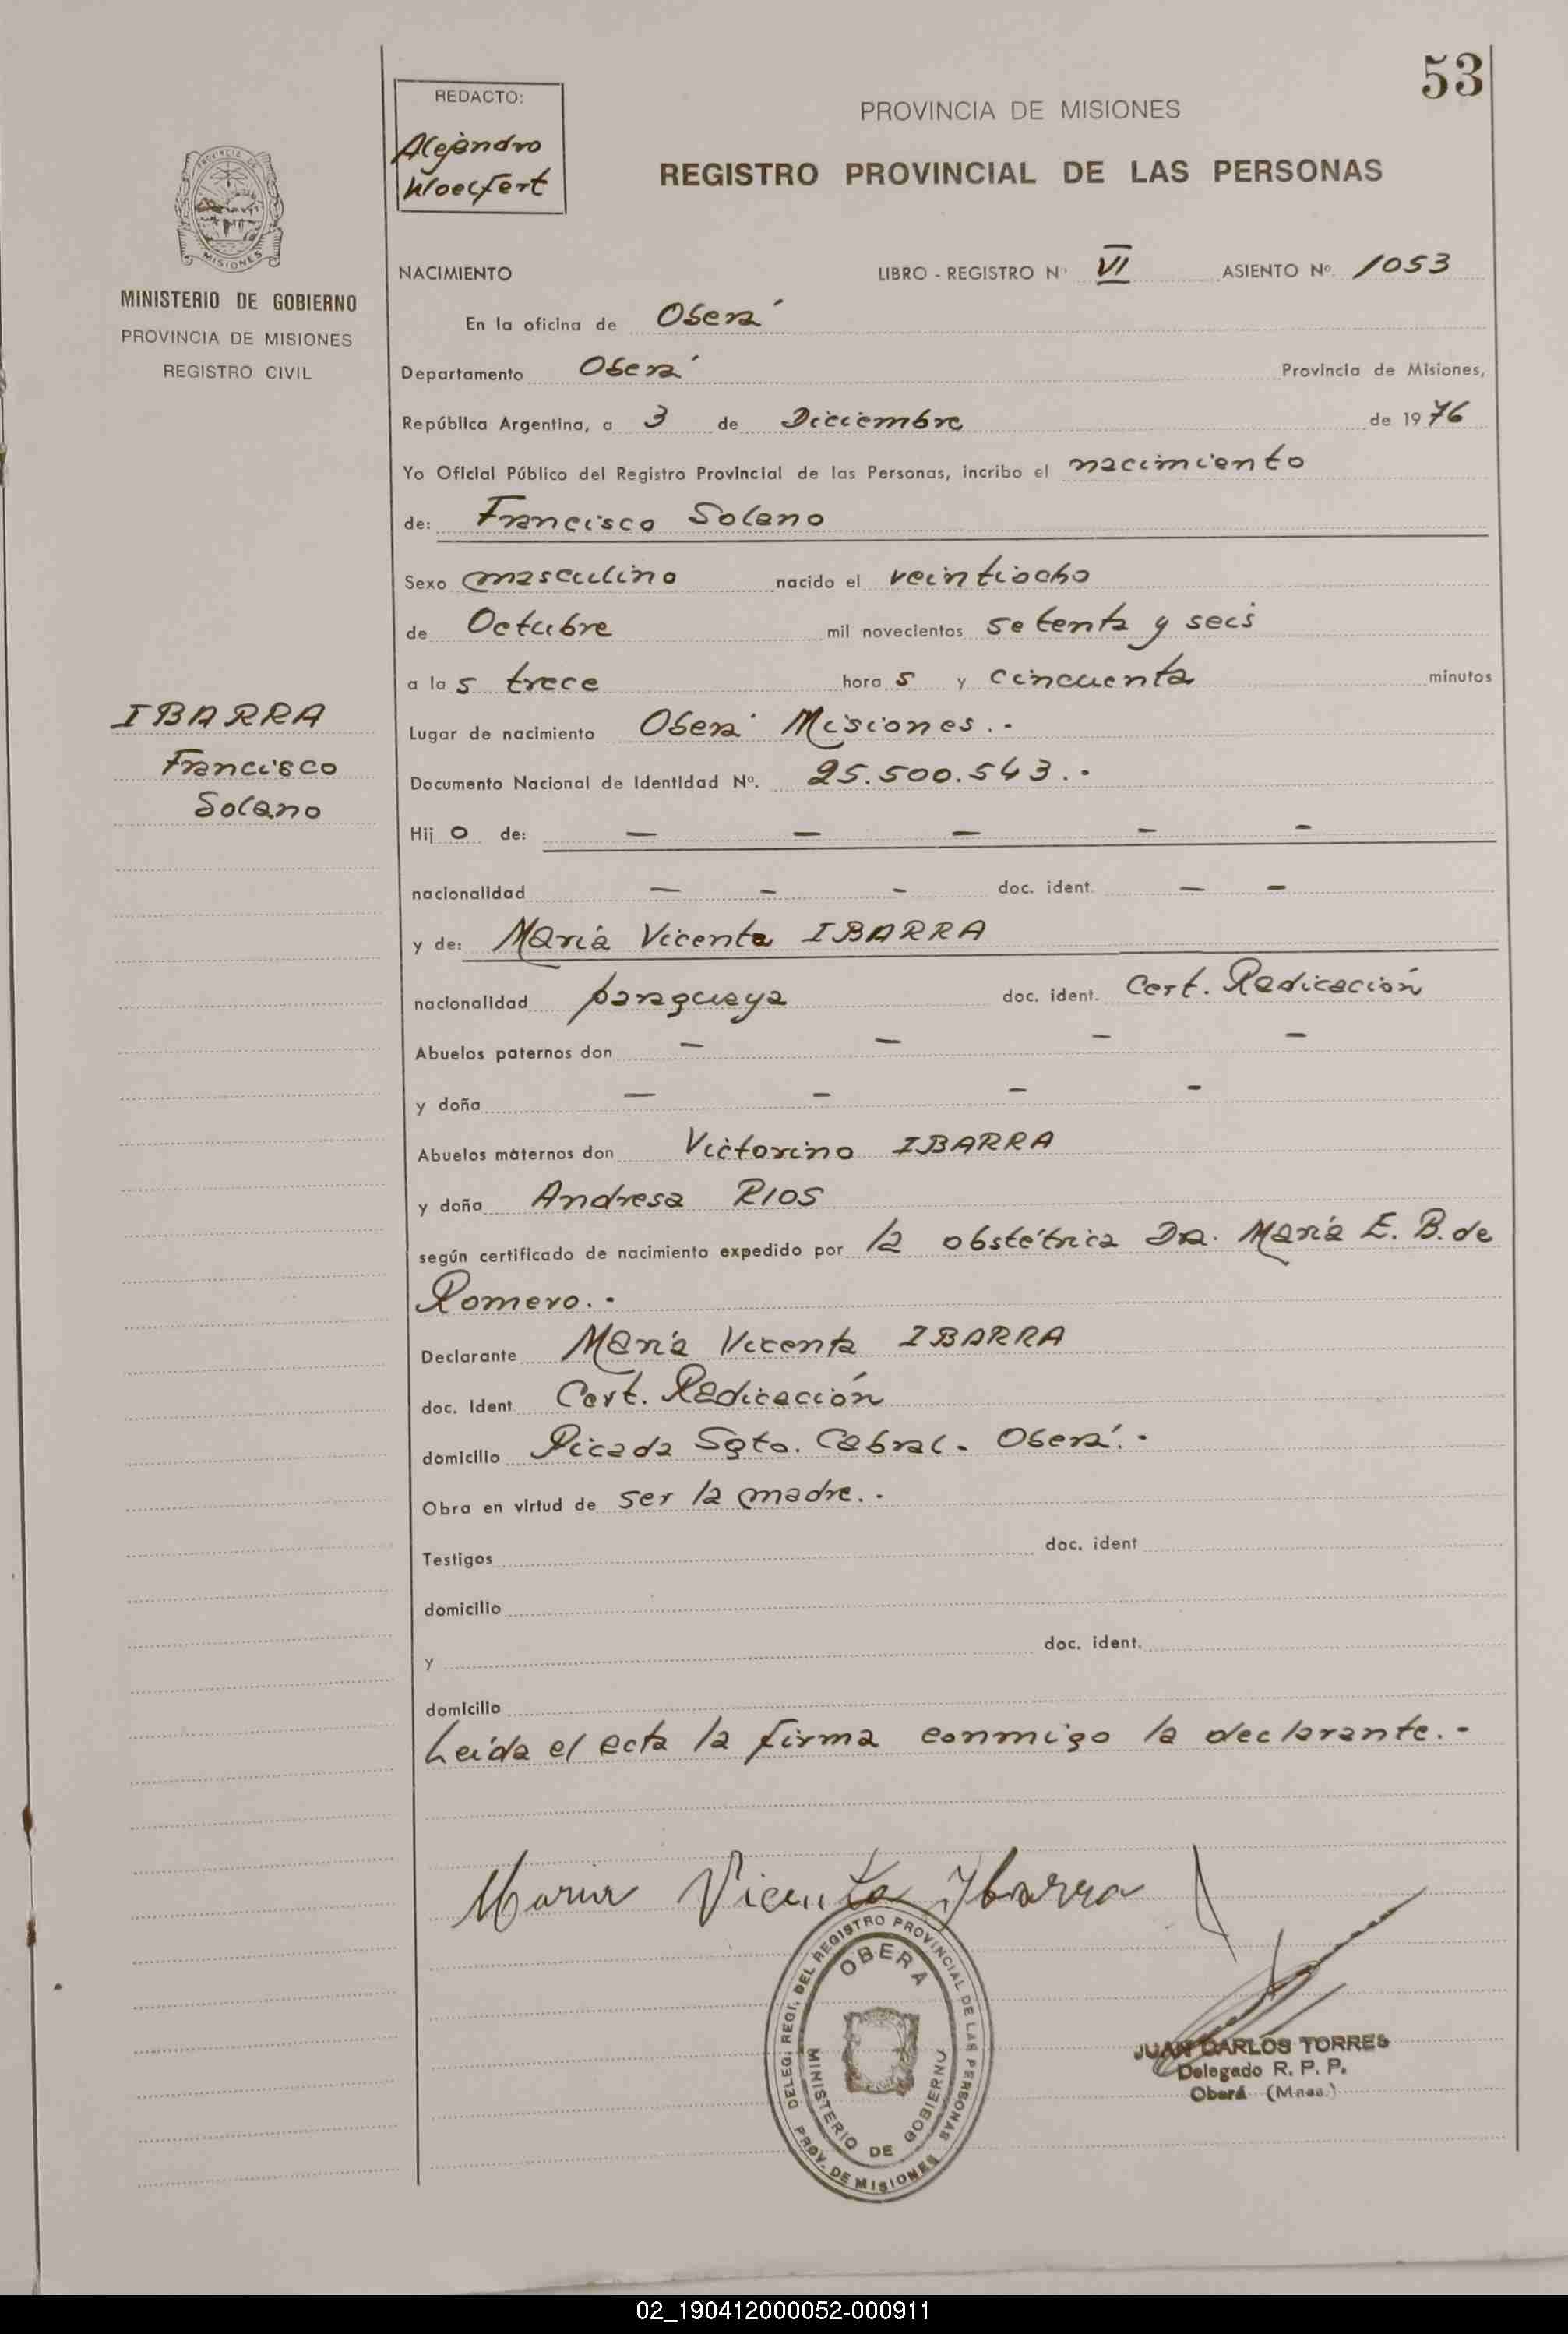 53
REDACTO:
Alejandro
Woelfert
PROVINCIA DE MISIONES
REGISTRO PROVINCIAL DE LAS PERSONAS
PROVINCIA DE
MISIONES
MINISTERIO DE GOBIERNO
PROVINCIA DE MISIONES
REGISTRO CIVIL
NACIMIENTO LIBRO - REGISTRO Nº VI ASIENTO Nº 1053
En la oficina de Oberá
Departamento Oberá Provincia de Misiones,
República Argentina, a 3 de Diciembre de 1976
Yo Oficial Público del Registro Provincial de las Personas, incribo el nacimiento
de: Francisco Solano
Sexo masculino nacido el veintiocho
de Octubre mil novecientos setenta y seis
a las trece horas y cincuenta minutos
IBARRA
Francisco
Solano
Lugar de nacimiento Oberá Misiones.-
Documento Nacional de Identidad Nº. 25.500.543.-
Hijo de: — — — — —
nacionalidad — — — doc. ident. — —
y de: María Vicenta IBARRA
nacionalidad paraguaya doc. ident. Cert. Radicación
Abuelos paternos don — — — —
y doña — — — —
Abuelos maternos don Victorino IBARRA
y doña Andresa RIOS
según certificado de nacimiento expedido por la obstétrica Dra. María E. B. de
Romero.-
Declarante María Vicenta IBARRA
doc. Ident Cert. Radicación
domicilio Picada Sgto. Cabral - Oberá.-
Obra en virtud de ser la madre.-
Testigos doc. ident
domicilio
y doc. ident.
domicilio
Leída el acta la firma conmigo la declarante.-
Maria Vicenta Ybarra
DELEG. REGI. DEL REGISTRO PROVINCIAL DE LAS PERSONAS
PROV. DE MISIONES
OBERA
MINISTERIO DE GOBIERNO
JUAN CARLOS TORRES
Delegado R. P. P.
Oberá (Mnes.)
02_190412000052-000911